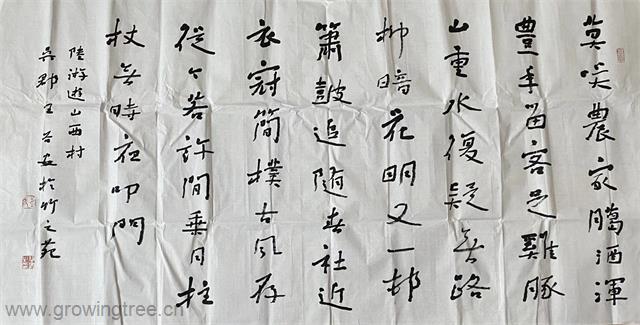 莫笑農家臘酒渾
豐年留客足雞豚
山重水復疑無路
柳暗花明又一邨
簫鼓追隨春社近
衣冠簡樸古風存
從今若許閒乘月拄
杖無時夜叩門
陸游遊山西村
吳郡王於竹之苑
www.growingtree.cn